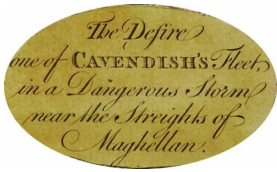 The Desire
one of CAVENDISH'S Fleet
in a Dangerous Storm
near the Streights of
Maghellan.